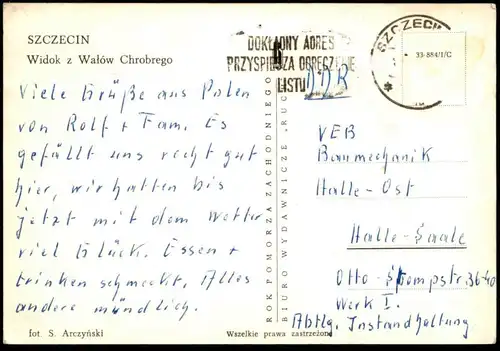 SZCZECIN
Widok z Wałów Chrobrego
Viele Grüße aus Polen
von Rolf + Fam. Es
gefällt uns recht gut
hier, wir hatten bis
jetzt mit dem Wetter
viel Glück. Essen +
trinken schmeckt. Alles
andere mündlich.
fot. S. Arczyński
ROK POMORZA ZACHODNIEGO
BIURO WYDAWNICZE „RUCH"
DOKŁADNY ADRES
PRZYSPIESZA DORĘCZENIE
LISTU
SZCZECIN
33-884/1/C
DDR
VEB
Baumechanik
Halle-Ost
Halle-Saale
Otto-Stompstr. 36-40
Werk I.
Abtlg. Instandhaltung
Wszelkie prawa zastrzeżone